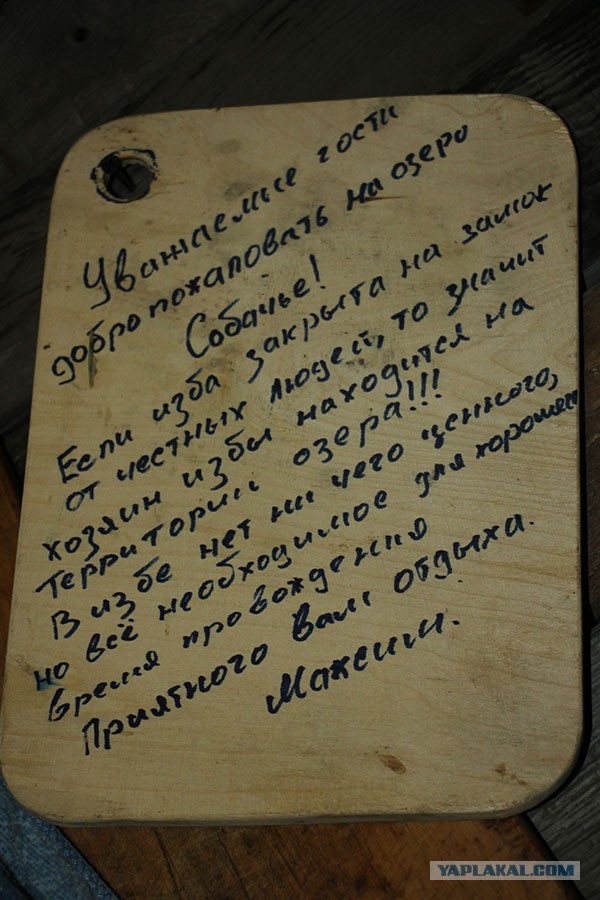 Уважаемые гости
добро пожаловать на озеро
Собачье!
Если изба закрыта на замок
от честных людей, то значит
хозяин избы находится на
территории озера!!!
В избе нет ни чего ценного,
но всё необходимое для хорошего
время провождения
Приятного вам отдыха.
Максим.
YAPLAKAL.COM